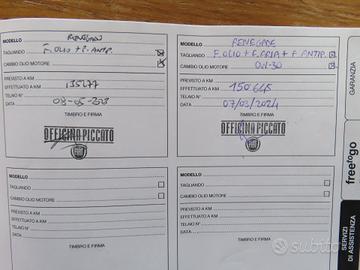 MODELLO RENEGADE
TAGLIANDO F.OLIO + F. ANTIP.
CAMBIO OLIO MOTORE
PREVISTO A KM
EFFETTUATO A KM
TELAIO N°
DATA 08-05-2023
TIMBRO E FIRMA
OFFICINA PICCATO
MODELLO RENEGADE
TAGLIANDO F.OLIO + F.ARIA + F. ANTIP.
CAMBIO OLIO MOTORE 0W-30
PREVISTO A KM
EFFETTUATO A KM 150645
TELAIO N°
DATA 07/03/2024
TIMBRO E FIRMA
OFFICINA PICCATO
MODELLO
TAGLIANDO
CAMBIO OLIO MOTORE
PREVISTO A KM
EFFETTUATO A KM
TELAIO N°
DATA
TIMBRO E FIRMA
MODELLO
TAGLIANDO
CAMBIO OLIO MOTORE
PREVISTO A KM
EFFETTUATO A KM
TELAIO N°
DATA
TIMBRO E FIRMA
GARANZIA
freetogo
SERVIZI
DI ASSISTENZA
subito